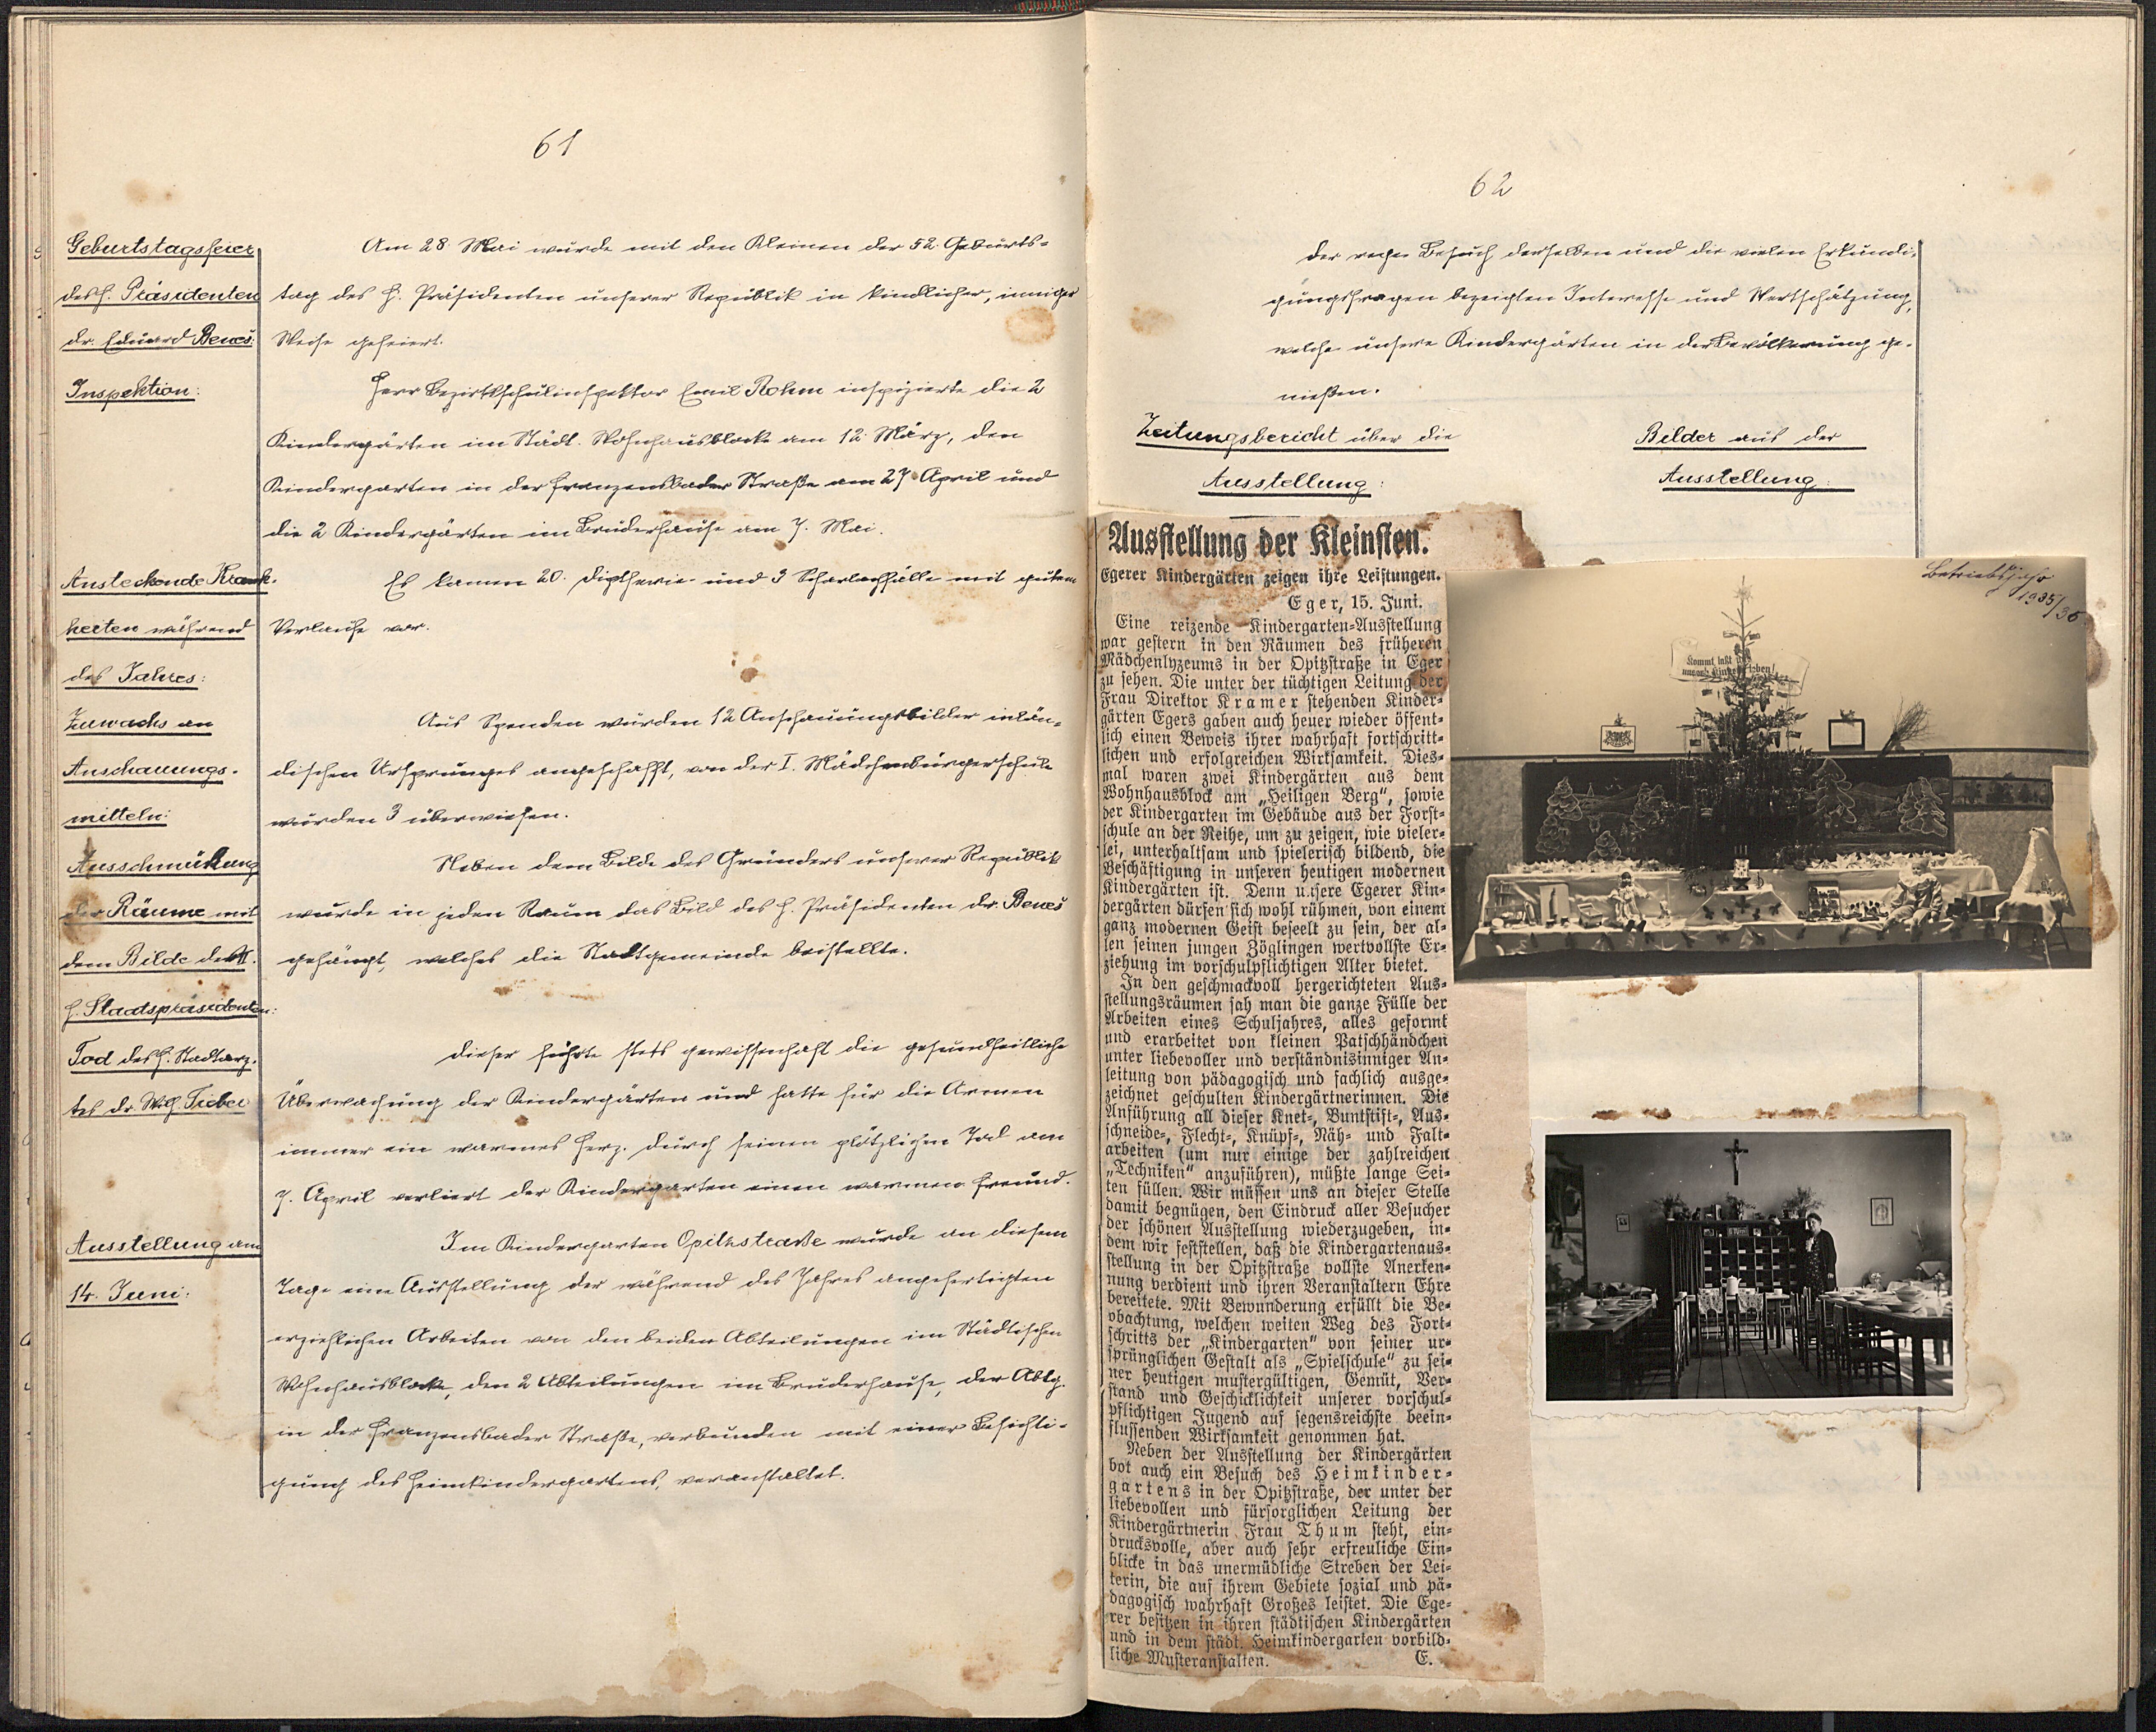 61
Geburtstagsfeier
des H. Präsidenten
Dr. Eduard Beneš:
Am 28. Mai wurde mit den Kleinen der 52. Geburts-
tag des H. Präsidenten unserer Republik in kindlicher, inniger
Weise gefeiert.
Inspektion:
Herr Bezirksschulinspektor Emil Rohm inspizierte die 2
Kindergärten im Städt. Wohnhausblock am 12. März, den
Kindergarten in der Franzensbader Straße am 27. April und
die 2 Kindergärten im Bruderhause am 7. Mai.
Ansteckende Krank-
heiten während
des Jahres:
Es kamen 20. Diptherie- und 3 Scharlachfälle mit gutem
Verlaufe vor.
Zuwachs an
Anschauungs-
mitteln:
Aus Spenden wurden 12 Anschauungsbilder inlän-
dischen Ursprunges angeschafft, von der I. Mädchenbürgerschule
wurden 3 überwiesen.
Ausschmückung
der Räume mit
dem Bilde des II.
H. Staatspräsidenten:
Neben dem Bilde des Gründers unserer Republik
wurde in jeden Raum das Bild des H. Präsidenten Dr. Beneš
gehängt, welches die Stadtgemeinde beistellte.
Tod des H. Stadtarz-
tes Dr. Wilh. Treber
Dieser führte stets gewissenhaft die gesundheitliche
Überwachung der Kindergärten und hatte für die Armen
immer ein warmes Herz. Durch seinen plötzlichen Tod am
7. April verliert der Kindergarten einen warmen Freund.
Ausstellung am
14. Juni:
Im Kindergarten Opitzstraße wurde an diesem
Tage eine Ausstellung der während des Jahres angefertigten
erziehlichen Arbeiten von den beiden Abteilungen im Städtischen
Wohnhausblocke, den 2 Abteilungen im Bruderhause, der Abtlg.
in der Franzensbader Straße, verbunden mit einer Besichti-
gung des Heimkindergartens, veranstaltet.
62
Der rege Besuch derselben und die vielen Erkundi-
gungsfragen bezeigten Interesse und Wertschätzung,
welche unsere Kindergärten in der Bevölkerung ge-
nießen.
Zeitungsbericht über die
Ausstellung:
Bilder aus der
Ausstellung:
Ausstellung der Kleinsten.
Egerer Kindergärten zeigen ihre Leistungen.
Eger, 15. Juni.
Eine reizende Kindergarten-Ausstellung
war gestern in den Räumen des früheren
Mädchenlyzeums in der Opitzstraße in Eger
zu sehen. Die unter der tüchtigen Leitung der
Frau Direktor Kramer stehenden Kinder-
gärten Egers gaben auch heuer wieder öffent-
lich einen Beweis ihrer wahrhaft fortschritt-
lichen und erfolgreichen Wirksamkeit. Dies-
mal waren zwei Kindergärten aus dem
Wohnhausblock am „Heiligen Berg“, sowie
der Kindergarten im Gebäude aus der Forst-
schule an der Reihe, um zu zeigen, wie vieler-
lei, unterhaltsam und spielerisch bildend, die
Beschäftigung in unseren heutigen modernen
Kindergärten ist. Denn unsere Egerer Kin-
dergärten dürfen sich wohl rühmen, von einem
ganz modernen Geist beseelt zu sein, der al-
len seinen jungen Zöglingen wertvollste Er-
ziehung im vorschulpflichtigen Alter bietet.
In den geschmackvoll hergerichteten Aus-
stellungsräumen sah man die ganze Fülle der
Arbeiten eines Schuljahres, alles geformt
und erarbeitet von kleinen Patschhändchen
unter liebevoller und verständnisinniger An-
leitung von pädagogisch und fachlich ausge-
zeichnet geschulten Kindergärtnerinnen. Die
Anführung all dieser Knet-, Buntstift-, Aus-
schneide-, Flecht-, Knüpf-, Näh- und Falt-
arbeiten (um nur einige der zahlreichen
„Techniken“ anzuführen), müßte lange Sei-
ten füllen. Wir müssen uns an dieser Stelle
damit begnügen, den Eindruck aller Besucher
der schönen Ausstellung wiederzugeben, in-
dem wir feststellen, daß die Kindergartenaus-
stellung in der Opitzstraße vollste Anerken-
nung verdient und ihren Veranstaltern Ehre
bereitete. Mit Bewunderung erfüllt die Be-
obachtung, welchen weiten Weg des Fort-
schritts der „Kindergarten“ von seiner ur-
sprünglichen Gestalt als „Spielschule“ zu sei-
ner heutigen mustergültigen, Gemüt, Ver-
stand und Geschicklichkeit unserer vorschul-
pflichtigen Jugend auf segensreichste beein-
flussenden Wirksamkeit genommen hat.
Neben der Ausstellung der Kindergärten
bot auch ein Besuch des Heimkinder-
gartens in der Opitzstraße, der unter der
liebevollen und fürsorglichen Leitung der
Kindergärtnerin Frau Thum steht, ein-
drucksvolle, aber auch sehr erfreuliche Ein-
blicke in das unermüdliche Streben der Lei-
terin, die auf ihrem Gebiete sozial und pä-
dagogisch wahrhaft Großes leistet. Die Ege-
rer besitzen in ihren städtischen Kindergärten
und in dem städt. Heimkindergarten vorbild-
liche Musteranstalten. E.
Betriebsjahr
1935/36
Kommt, laßt
unsern Kindern leben!